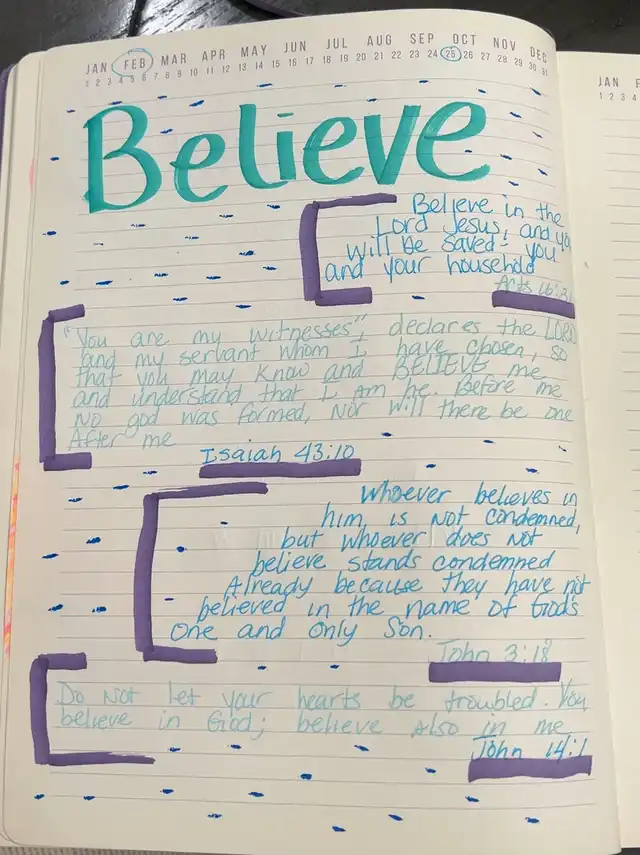 JAN FEB MAR APR MAY JUN JUL AUG SEP OCT NOV DEC
1 2 3 4 5 6 7 8 9 10 11 12 13 14 15 16 17 18 19 20 21 22 23 24 25 26 27 28 29 30 31
JAN F
1 2 3 4
Believe
Believe in the
Lord Jesus, and yo
will be saved - you
and your household
Acts 16:31
"You are my witnesses", declares the LORD
and my servant whom I have chosen, so
that you may know and BELIEVE me
and understand that I Am he. Before me
No god was formed, Nor will there be one
After me
Isaiah 43:10
Whoever believes in
him is Not condemned,
but whoever does Not
believe stands condemned
Already because they have not
believed in the name of Gods
One and Only Son.
John 3:18
Do Not let your hearts be troubled. You
believe in God; believe Also in me
John 14:1